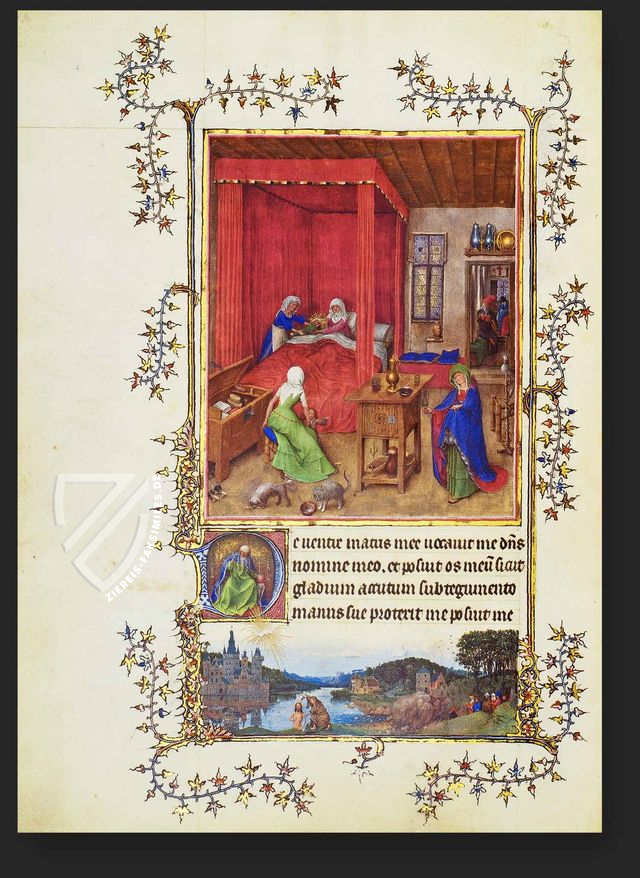 De uentre matris mee uocauit me dn̄s
nomine meo. et posuit os meū sicut
gladium acutum sub tegumento
manus sue protexit me posuit me
ZIEREIS-FAKSIMILES.DE